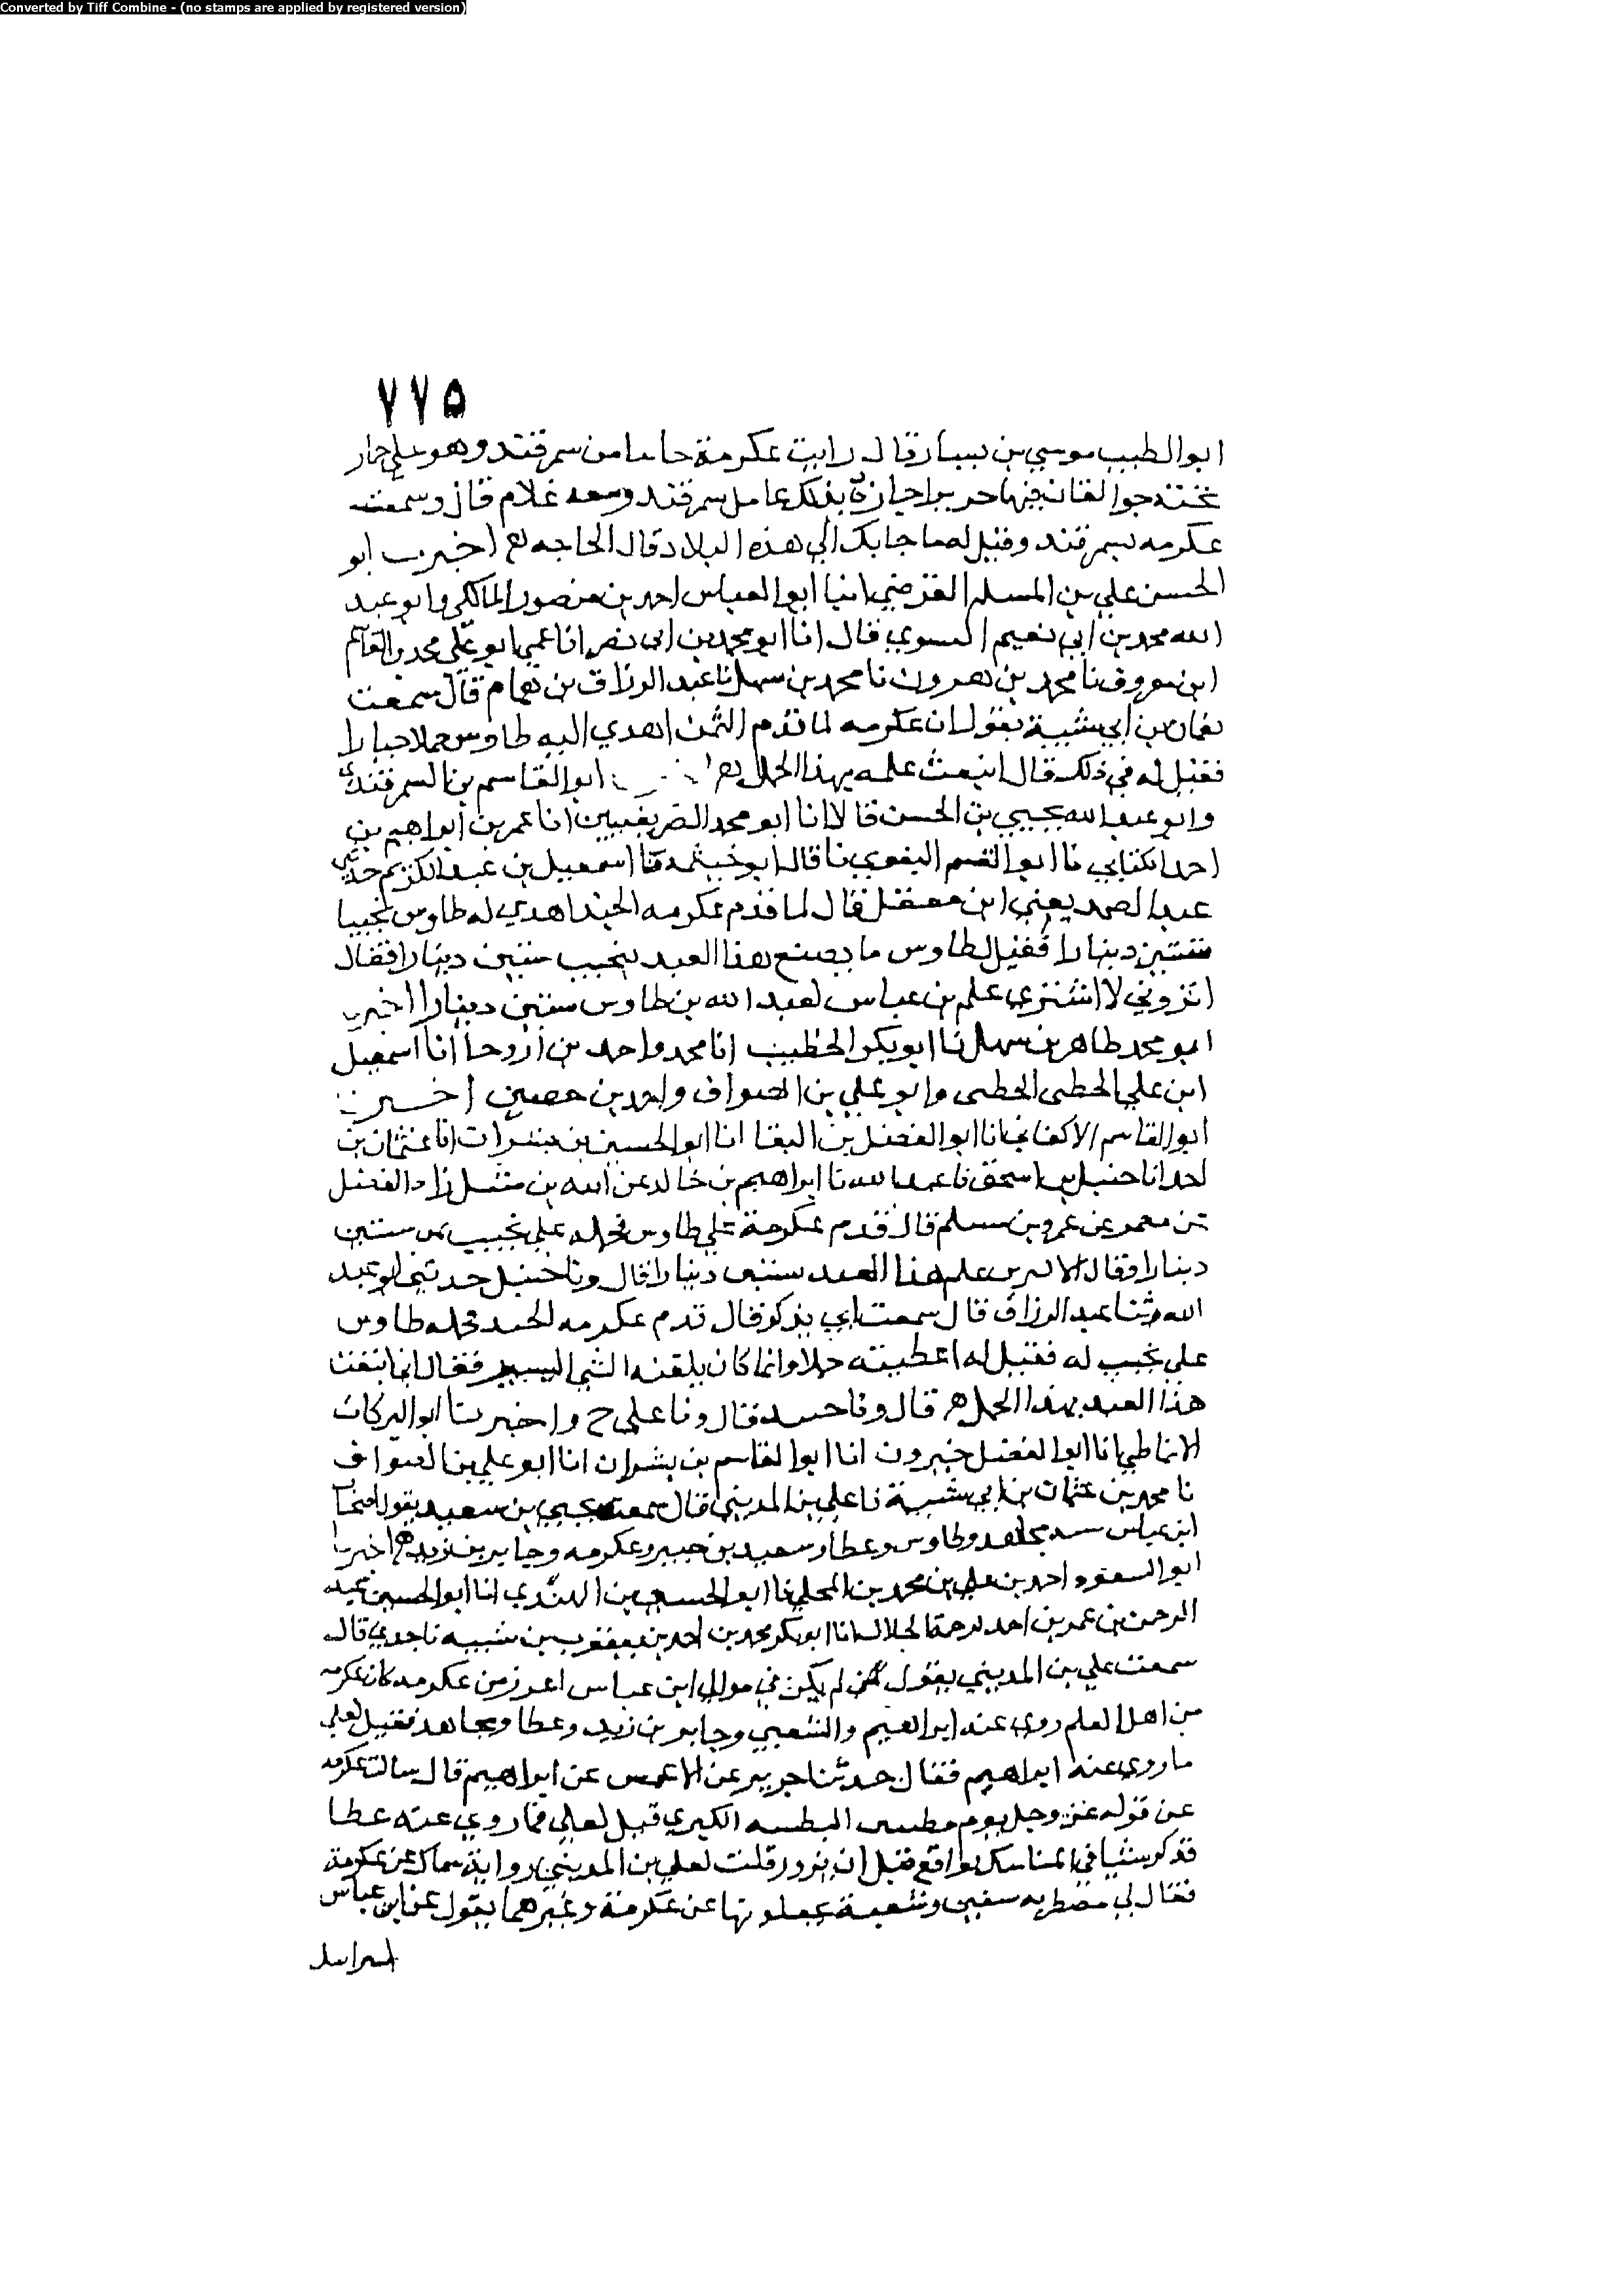 Converted by Tiff Combine - (no stamps are applied by registered version)
٧٧٥
ابو الطيب موسي بن يسار قال رايت عكرمة جايا من سمرقند وهو علي حمار
تحته جوالقان فيهما حرير اجازه بذلك عامل سمرقند ومعه غلام قال وسمعت
عكرمه بسمرقند وقيل له ما جا بك الي هذه البلاد قال الحاجه اخبرنا ابو
الحسن علي بن المسلم الفرضي انبا ابو العباس احمد بن منصور المالكي وابو عبد
الله محمد بن ابي نعيم النسوي قال انا ابو محمد بن ابي نصر انا عمي ابو علي محمد بن القاسم
ابن معروف نا محمد بن هرون نا محمد بن سهل نا عبد الرزاق بن همام قال سمعت
نعمان بن ابي شيبة يقول ان عكرمه لما قدم اليمن اهدي اليه طاوس جملا خيارا
فقيل له في ذلك قال ابتعت علمه بهذا الجمل ابو القاسم بن السمرقندي
وابو عبد الله يحيي بن الحسن قالا انا ابو محمد الصريفيين انا عمر بن ابراهيم بن
احمد الكتاني نا ابو القسم البغوي نا قال ابو خيثمه نا اسمعيل بن عبد الكريم حدثني
عبد الصمد يعني ابن معقل قال لما قدم عكرمه الجند اهدي له طاوس نجيبا
بستين دينارا فقيل لطاوس ما يصنع هذا العبد بنجيب ستين دينارا فقال
اتروني لا اشتري علم بن عباس لعبد الله بن طاوس بستين دينارا اخبرنا
ابو محمد طاهر بن سهل نا ابو بكر الخطيب انا محمد واحمد بن انا اسمعيل
ابن علي الخطبي الخطبي وابو علي بن الصواف واحمد بن اخبرنا
ابو القاسم الاكفاني نا ابو الفضل بن البقا انا ابو الحسين بن بشرات انا عثمان بن
احمد انا حنبل بن اسحق نا عبد الله نا ابراهيم بن خالد عن زاد الفضل
عن معمر عن عمرو بن مسلم قال قدم عكرمة علي طاوس فحمله علي نجيب ثمن ستين
دينارا وقال الا علم هذا العبد بستين دينارا قال ونا حنبل حدثني ابو عبد
الله ثنا عبد الرزاق قال سمعت ابي يذكر قال قدم عكرمه الجند فحمله طاوس
علي نجيب له فقيل له اعطيته جملا وانما كان يلقنه الشي اليسير فقال اني ابتعت
هذا العبد بهذا الجمل قال ونا حنبل قال ونا علي ح واخبرنا ابو البركات
الانماطي انا ابو الفضل خيرون انا ابو القاسم بن بشران انا ابو علي بن الصواف
نا محمد بن عثمان بن ابي شيبة نا علي بن المديني قال سمعت يحيي بن سعيد يقول اصحاب
ابن عباس سته مجاهد وطاوس وعطا وسعيد بن جبير وعكرمه وجابر بن زيد اخبرنا
ابو السعود احمد بن علي بن محمد بن المجلي نا ابو الحسين بن المهتدي انا ابو الحسين عبد
الرحمن بن عمر بن احمد بن حمة الخلال انا ابو بكر محمد بن احمد بن يعقوب بن شيبه نا جدي قال
سمعت علي بن المديني يقول لم يكن في موالي ابن عباس اغزر من عكرمه كان عكرمه
من اهل العلم روي عنه ابراهيم والشعبي وجابر بن زيد وعطا ومجاهد فقيل لعلي
ما روي عنه ابراهيم فقال حدثنا جرير عن الاعمش عن ابراهيم قال سالت عكرمه
عن قوله عز وجل يوم نبطش البطشه الكبري قيل لعلي فما روي عنه عطا
فذكر شيا في المناسك يواقع قبل ان يزور قلت لعلي بن المديني رواية سماك عن عكرمة
فقال لي مضطربه سفيين وشعبة يجعلونها عن عكرمة وغيرهما يقول عن ابن عباس
اسرايل